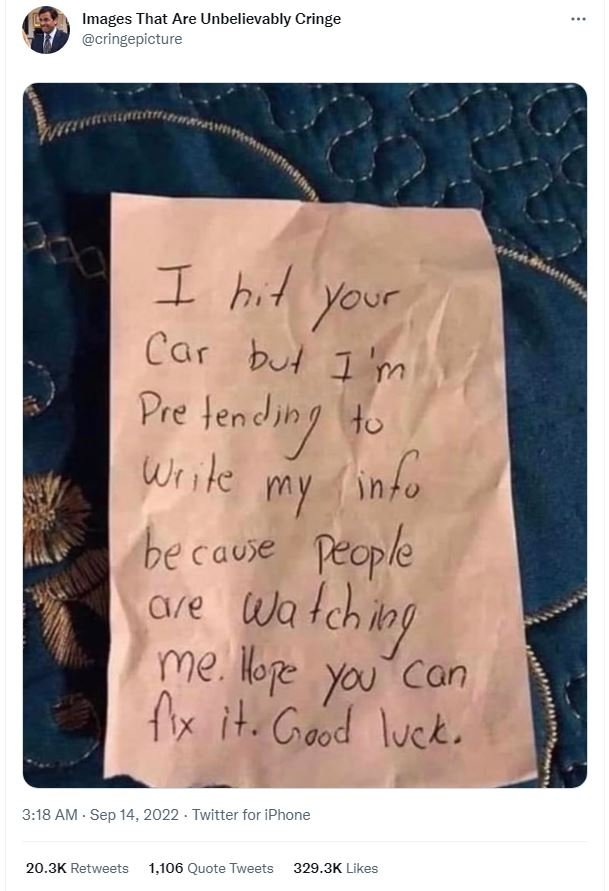 Images That Are Unbelievably Cringe
@cringepicture
I hit your
Car but I'm
Pretending to
Write my info
because people
are watching
me. Hope you can
fix it. Good luck.
3:18 AM · Sep 14, 2022 · Twitter for iPhone
20.3K Retweets 1,106 Quote Tweets 329.3K Likes